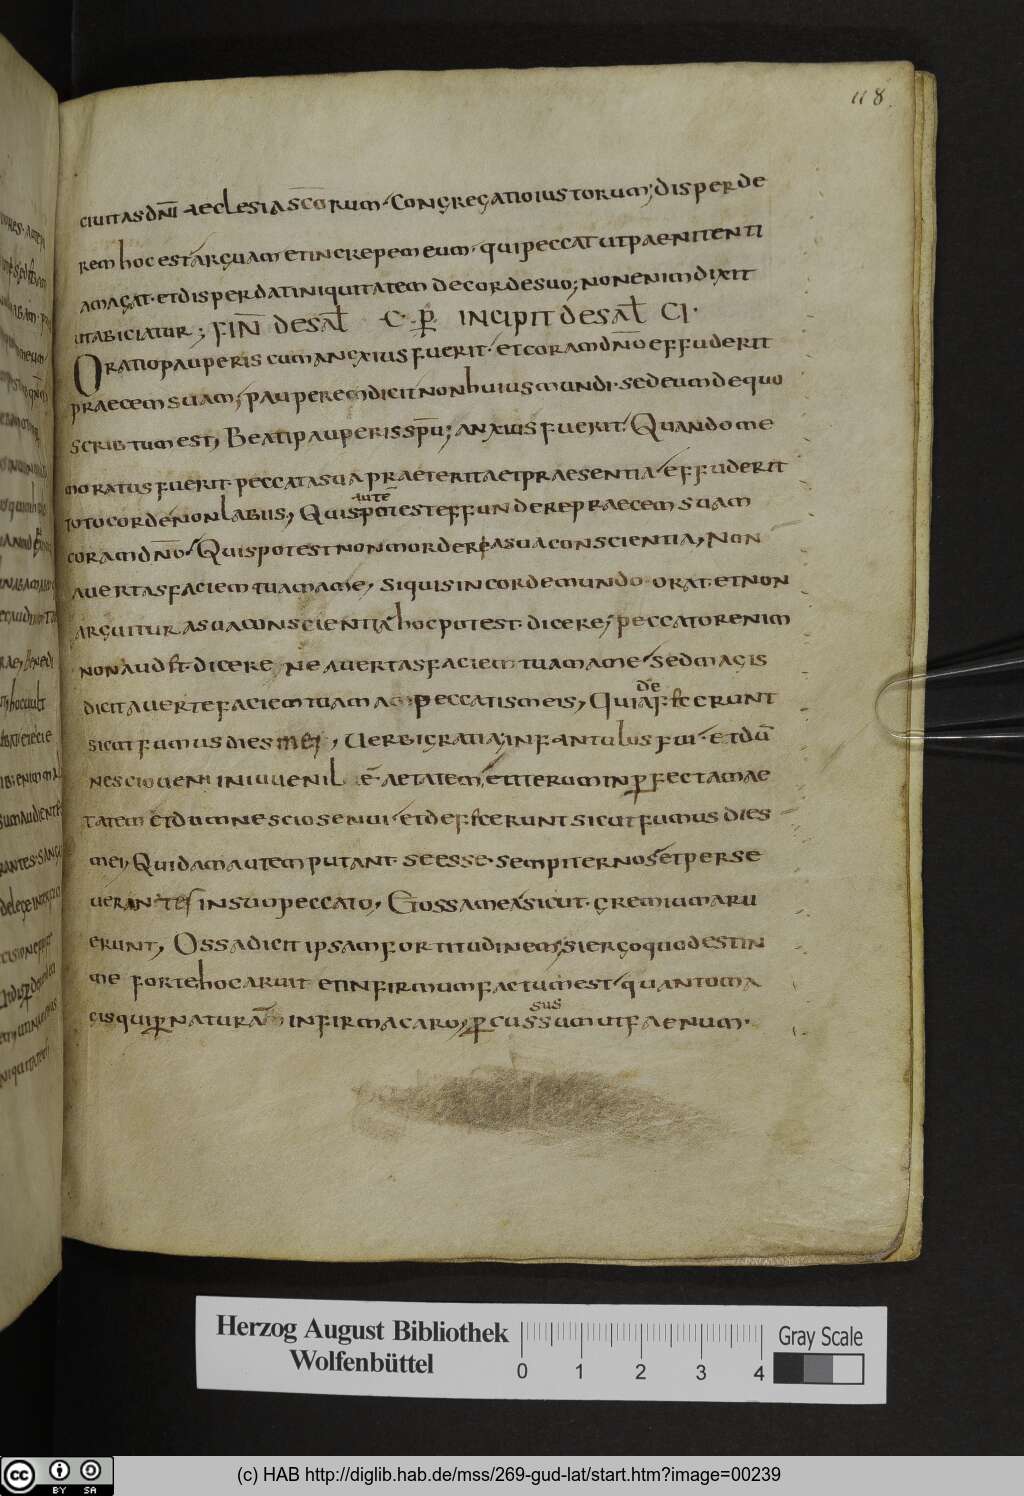 118
ciuitas dñi aeclesia scorum congregatio iustorum; disperde
rem hoc est arguam et increpem eum qui peccat ut paenitenti
am agat et disperdat iniquitatem de corde suo; non enim dixit
ut abiciatur; FIÑ de SAL C. P INCIPIT de SAL CI.
Oratio pauperis cum anxius fuerit et coram dño effuderit
praecem suam; pauperem dicit non huius mundi sed eum de quo
scribtum est, Beati pauperis spū; anxius fuerit Quando me
moratus fuerit peccata sua praeterita et praesentia effuderit
toto corde non labiis, Quis autē potest effundere praecem suam
coram dño Quis potest non morderi a sua conscientia, Non
auertas faciem tuam a me, si quis in corde mundo orat et non
arguitur a sua conscientia hoc potest dicere; peccatore enim
non audet dicere ne auertas faciem tuam a me sed magis
dicit auerte faciem tuam a peccatis meis, Quia defecerunt
sicut fumus dies mei, Uerbi gratia, in fantulus fui et dū
nescio ueni in iuuenil ē aetatem, et iterum in perfectam ae
tatem et dum nescio senui et defecerunt sicut fumus dies
mei, Quidam autem putant se esse sempiternos et perse
uerantes in suo peccato, Et ossa mea sicut gremium aru
erunt, Ossa dicit ipsam fortitudinem, si ergo quod est in
me forte hoc aruit et infirmum factum est quanto ma
gis qui per naturā infirma caro, percussus sum ut faenum.
Herzog August Bibliothek
Wolfenbüttel
0 1 2 3 4
Gray Scale
cc BY SA
(c) HAB http://diglib.hab.de/mss/269-gud-lat/start.htm?image=00239